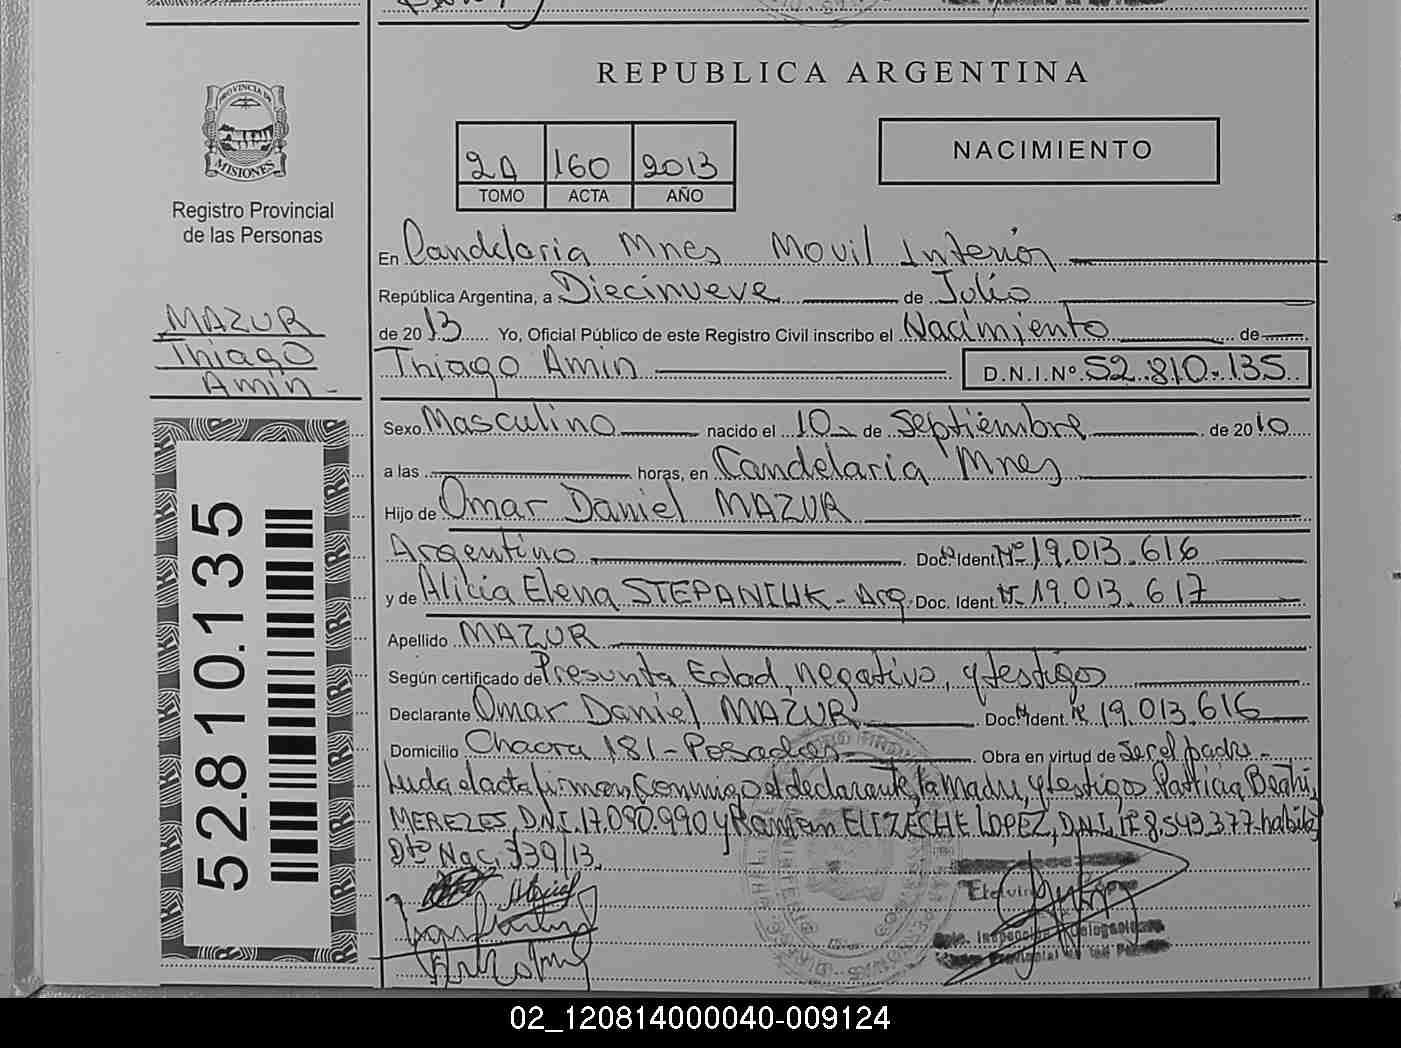 REPUBLICA ARGENTINA
PROVINCIA DE
MISIONES
Registro Provincial
de las Personas
2A 160 2013
TOMO ACTA AÑO
NACIMIENTO
En Candelaria Mnes Movil Interior
República Argentina, a Diecinueve de Julio
de 2013 Yo, Oficial Público de este Registro Civil inscribo el Nacimiento de
MAZUR
Thiago
Amin
Thiago Amin D.N.I.Nº 52.810.135
52.810.135
Sexo Masculino nacido el 10 de Septiembre de 2010
a las horas, en Candelaria Mnes
Hijo de Omar Daniel MAZUR
Argentino Doc. Ident. Nº 19.013.616
y de Alicia Elena STEPANIUK - Arg. Doc. Ident. Nº 19.013.617
Apellido MAZUR
Según certificado de Presunta Edad, negativo, y testigos
Declarante Omar Daniel MAZUR Doc. Ident. Nº 19.013.616
Domicilio Chacra 181 - Posadas Obra en virtud de ser el padre.-
Leida el acta firman conmigo el declarante, la Madre, y testigos Patricia Beatri
MEREZES, D.N.I. 17.090.990 y Ramon ELIZECHE LOPEZ, D.N.I. Nº 8.549.377-
Dto Nac. 339/13.
02_120814000040-009124